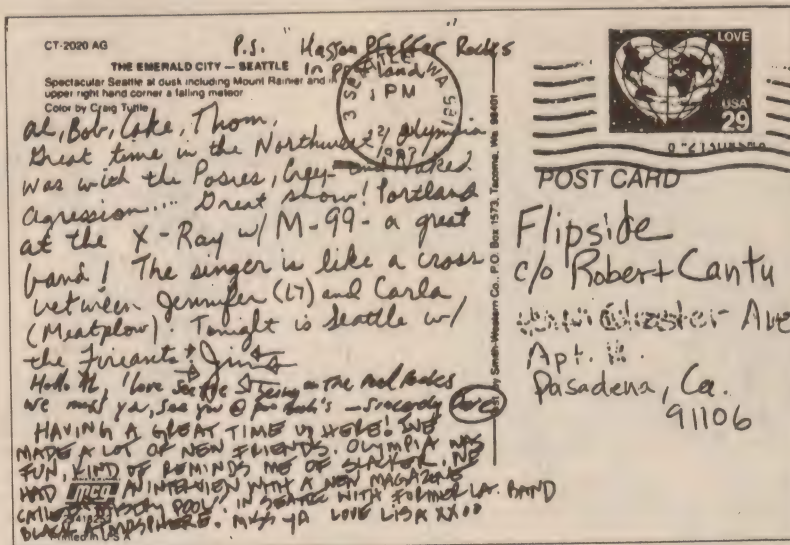 CT-2020 AG
P.S. "Hasson Pfeffer Rocks"
in Portland
THE EMERALD CITY — SEATTLE
Spectacular Seattle at dusk including Mount Rainier and in
upper right hand corner a falling meteor
Color by Craig Tuttle
SEATTLE WA
PM
LOVE
USA
29
al, Bob, Cake, Thom,
Great time in the Northwest Olympia
was with the Posies, and Naked
Agression.... Great show! Portland
at the X-Ray w/ M-99 - a great
band! The singer is like a cross
between Jennifer (L7) and Carla
(Meatplow). Tonight is Seattle w/
the Fireants! Jim
Hello Al, I love Seattle
we miss you, see you @ — Sincerely
HAVING A GREAT TIME UP HERE! WE
MADE A LOT OF NEW FRIENDS. OLYMPIA WAS
FUN, KIND OF REMINDS ME OF SLACKER. WE
HAD AN INTERVIEW WITH A NEW MAGAZINE
CALLED POOL" IN SEATTLE WITH FORMER LA. BAND
BLACK ATMOSPHERE. MISS YA LOVE LISA XXOO
mcp
Printed in USA
by Smith-Western Co., P.O. Box 1573, Tacoma, Wa 98401
POST CARD
Flipside
c/o Robert Cantu
Ave
Apt.
Pasadena, Ca.
91106